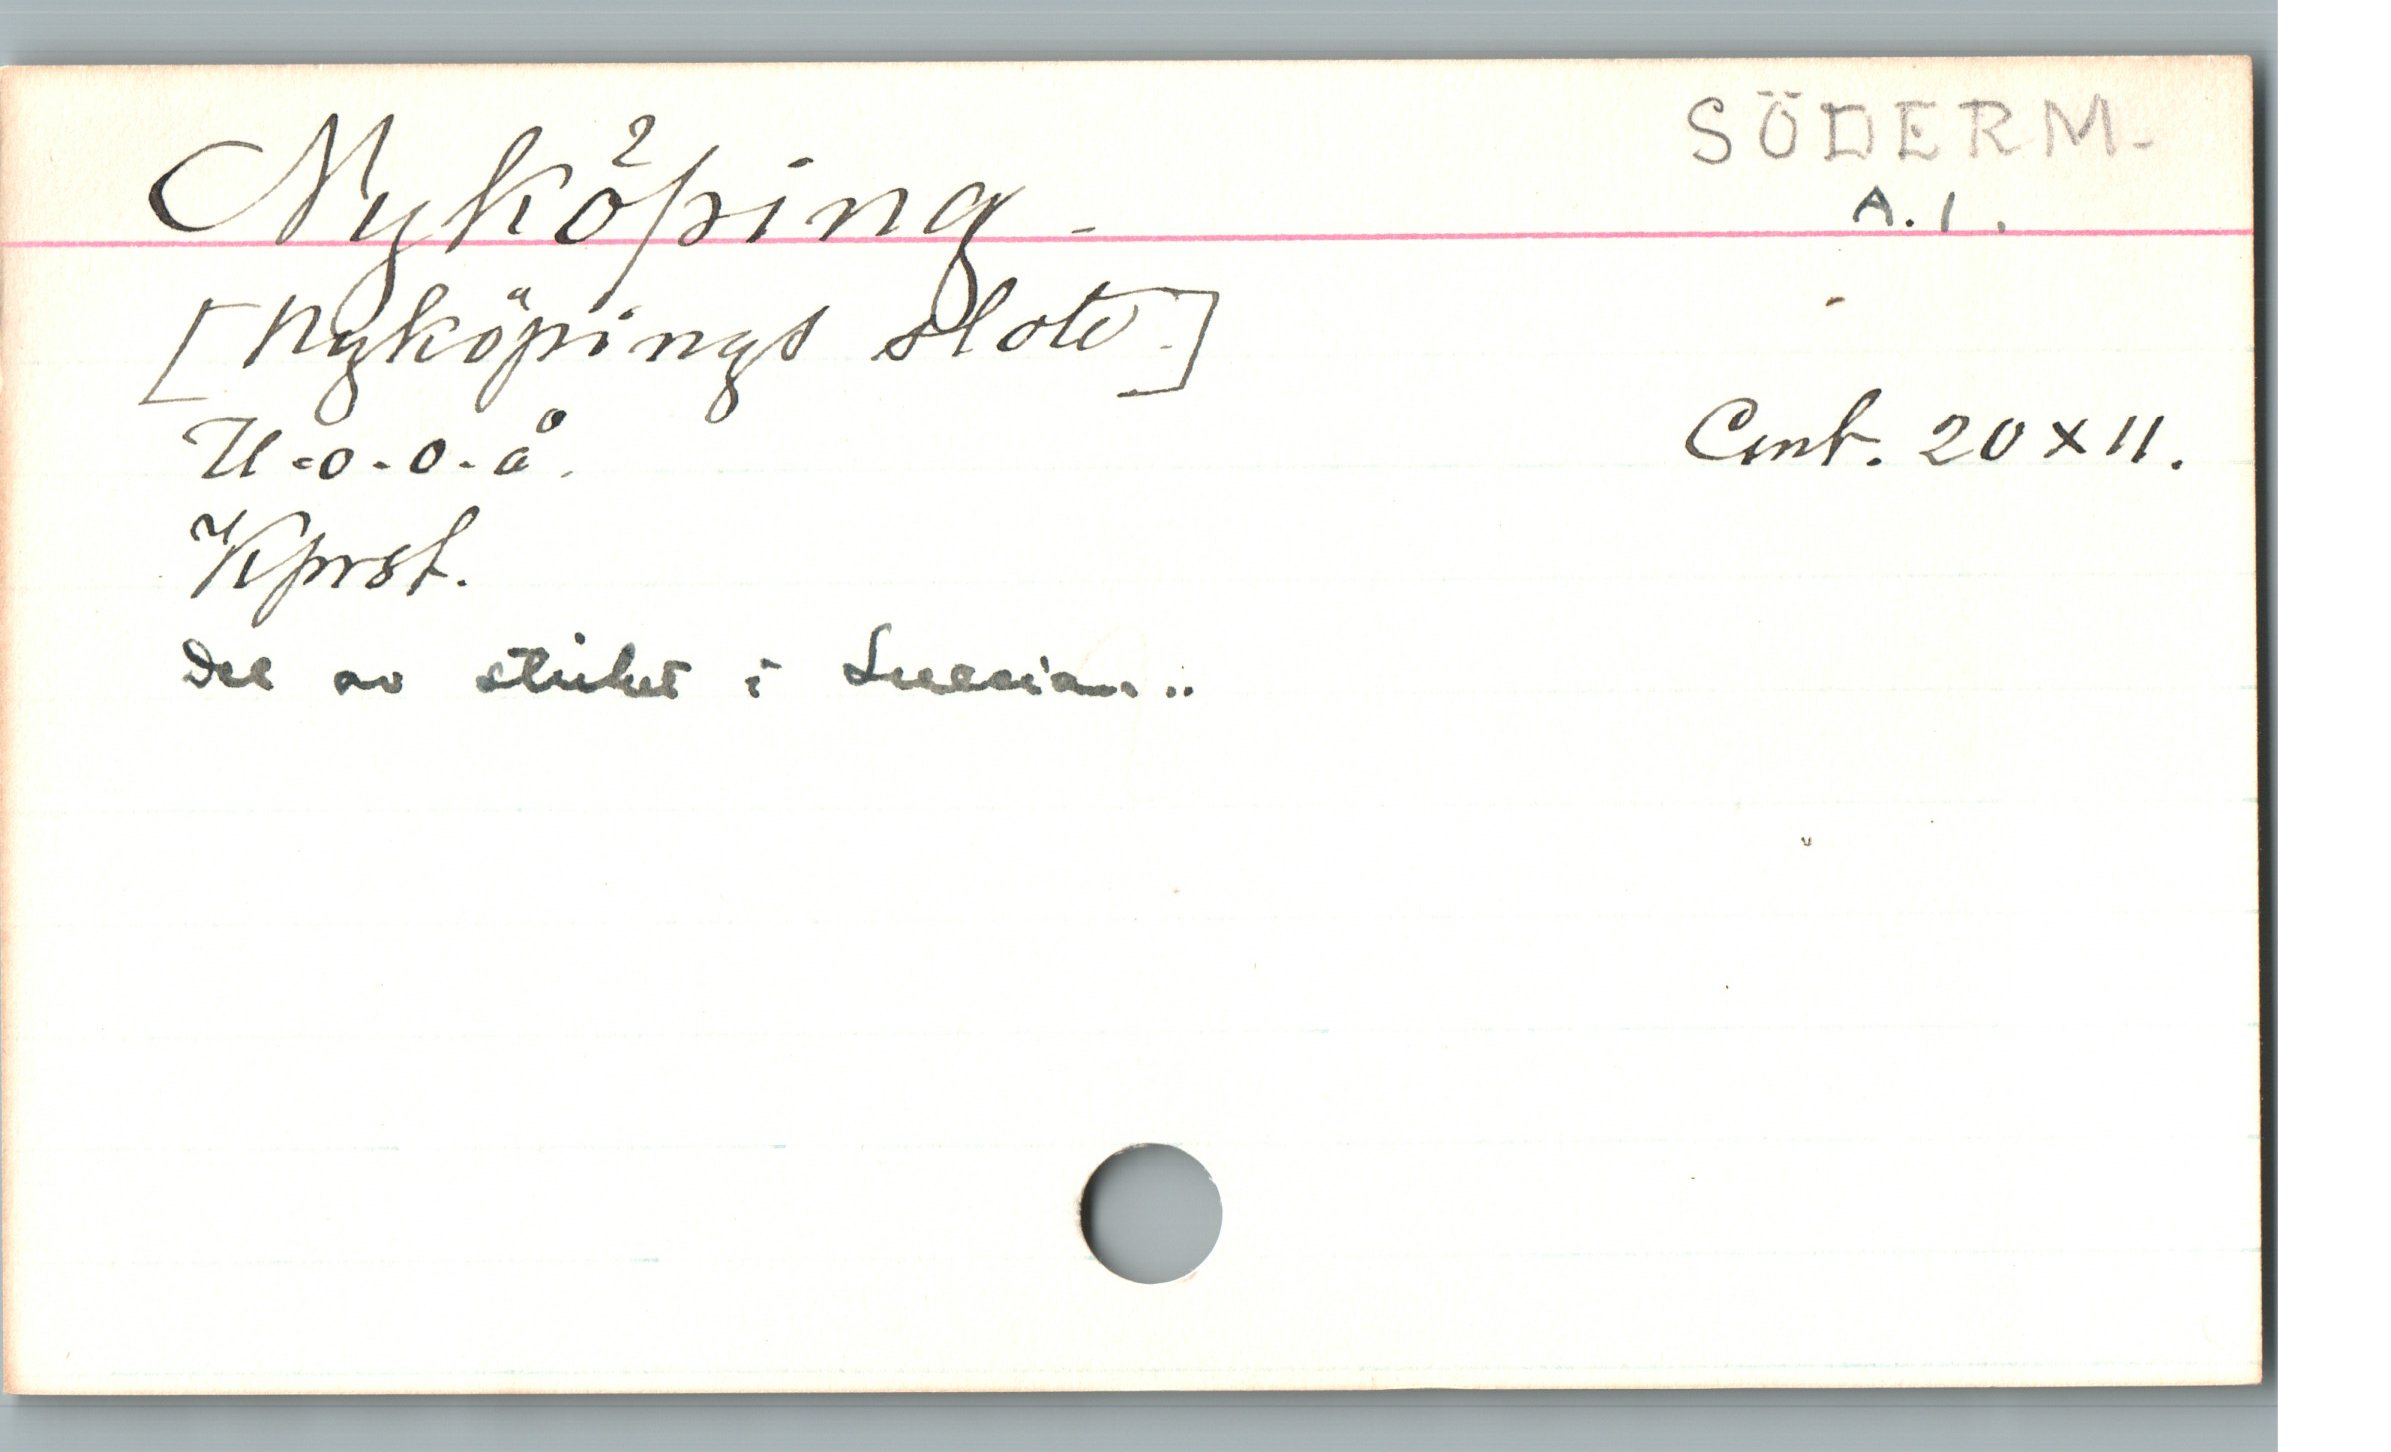 Nyköping.
SÖDERM.
A. 1.
[Nyköpings slott.]
U. o. o. å.
Cent. 20 x 11.
Kprst.
Del av sticket i Suecian..